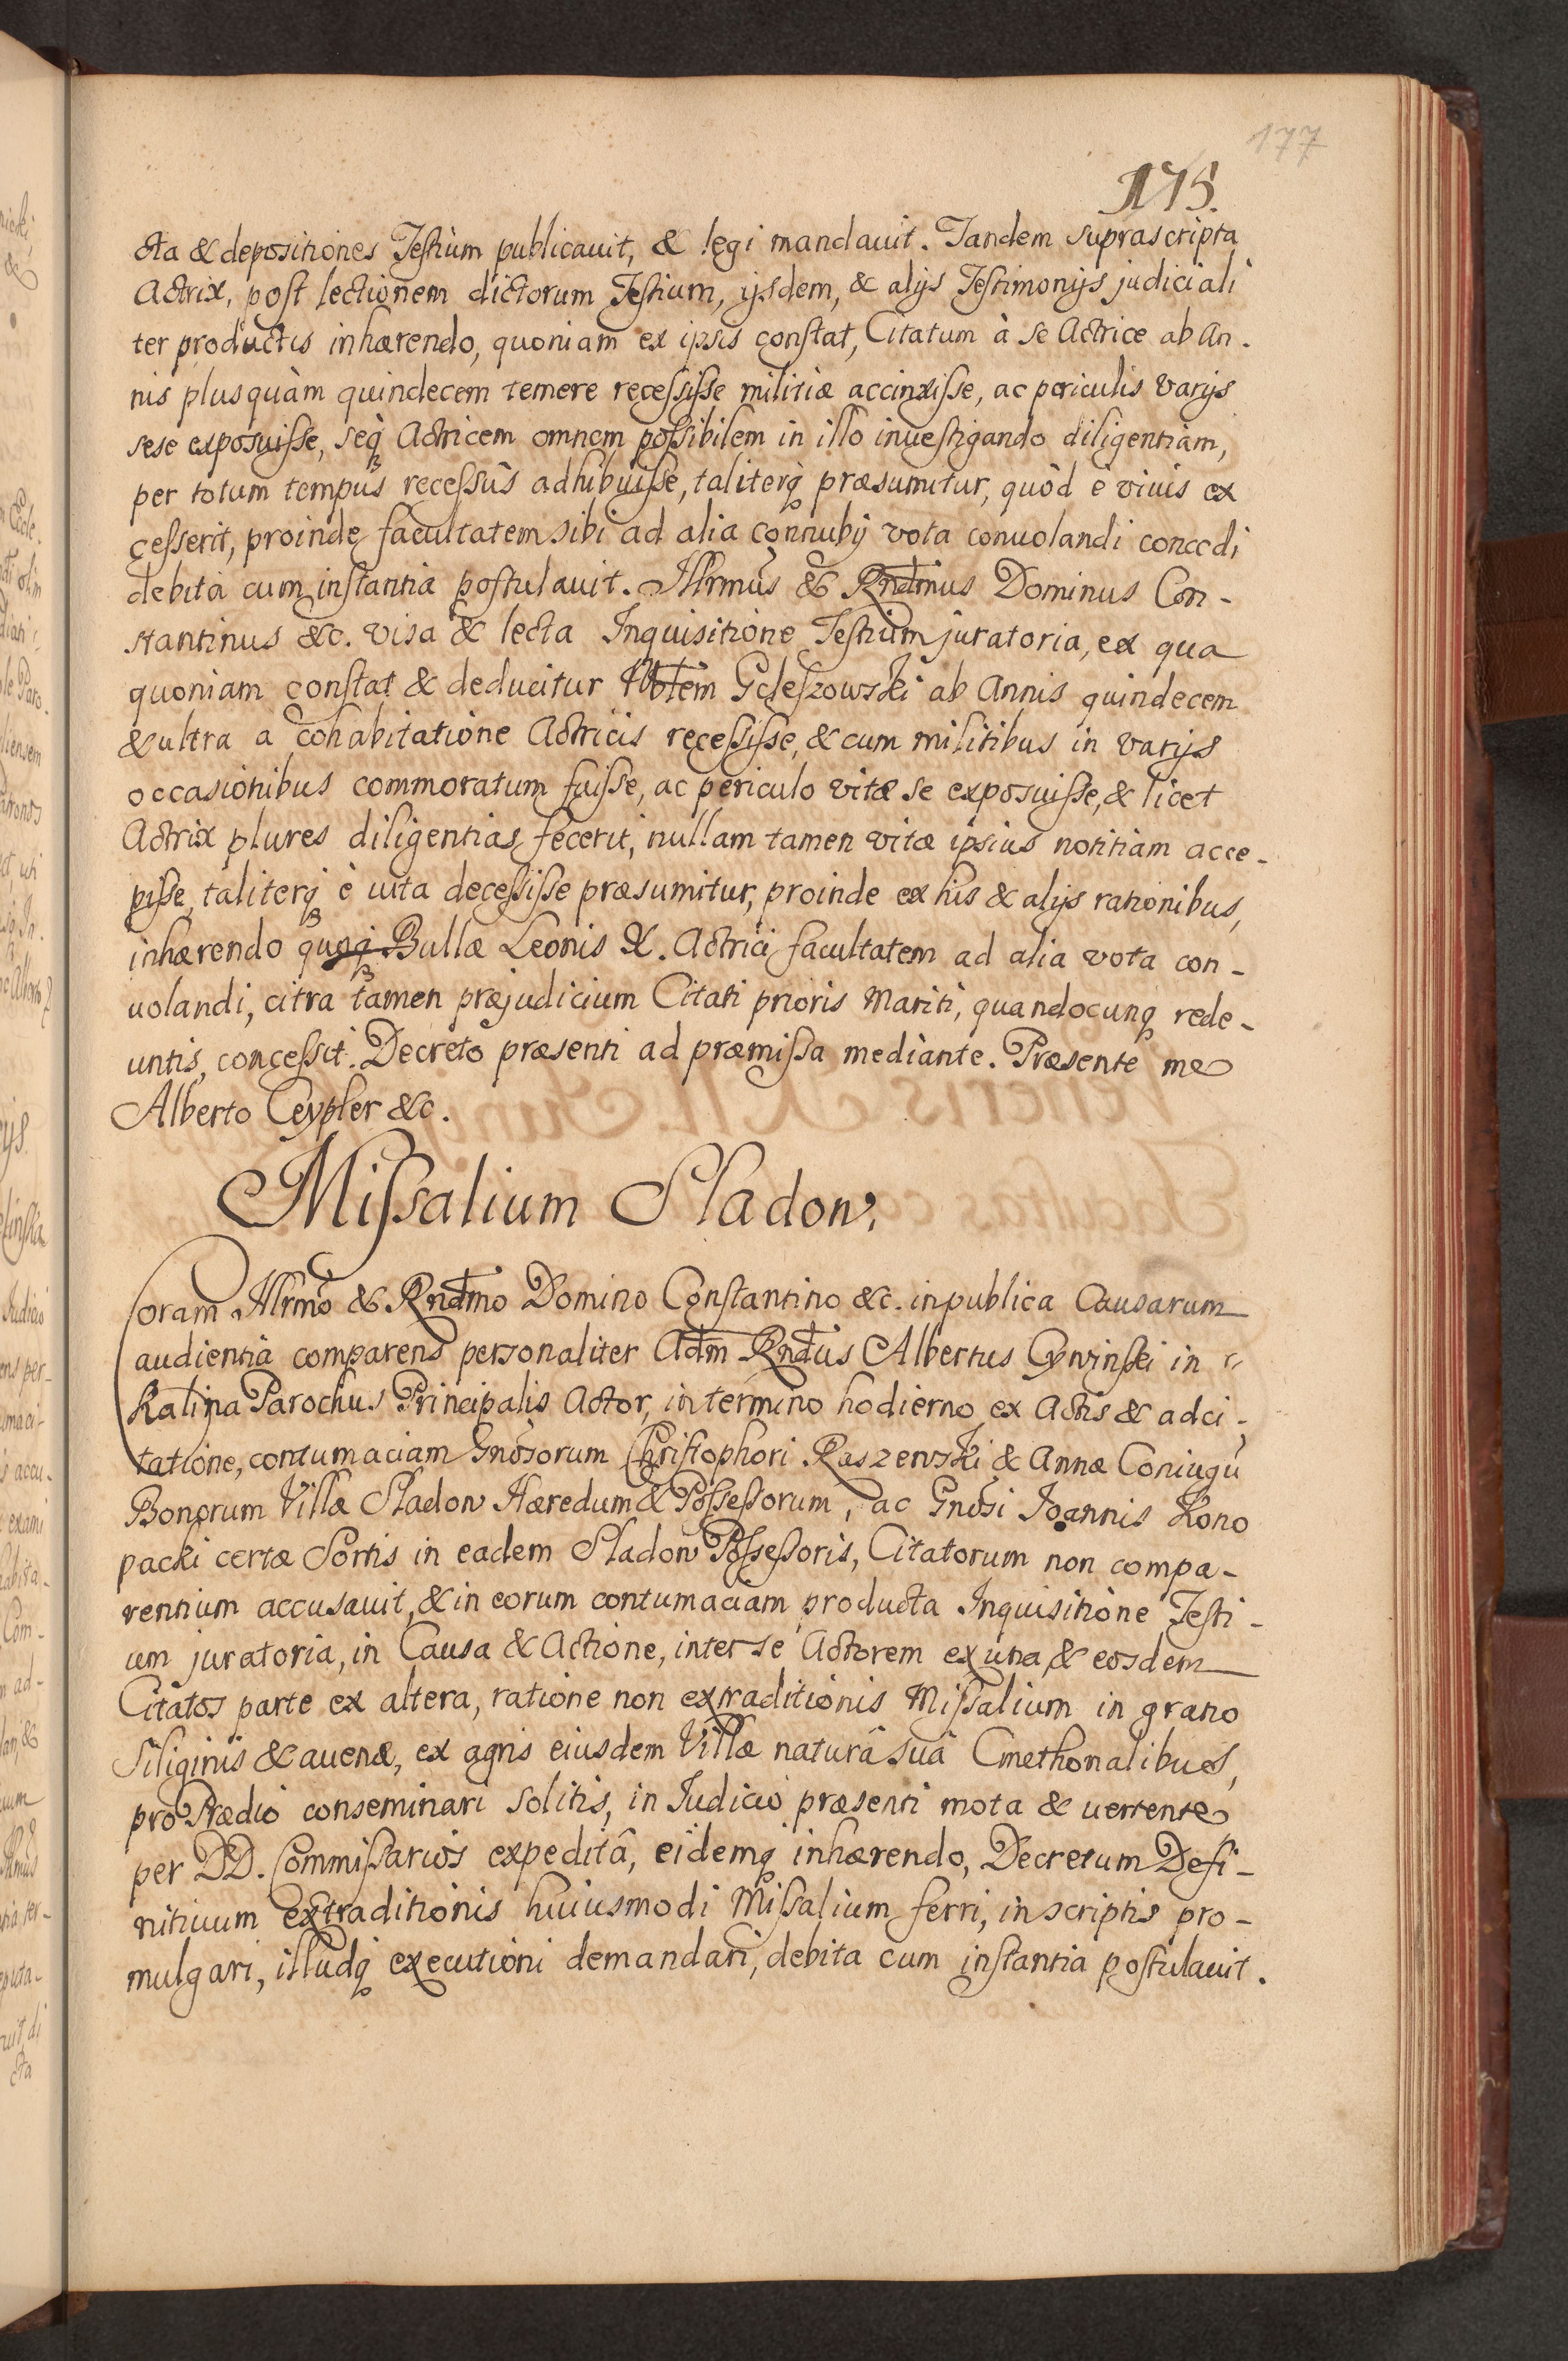 177
175.
cta & depositiones Testium publicauit, & legi mandauit. Tandem suprascripta
Actrix, post lectionem dictorum Testium, ijsdem, & alijs Testimonijs judiciali
ter productis inhærendo, quoniam ex ipsis constat, Citatum à se Actrice ab An-
nis plusquàm quindecem temere recessisse militiæ accinxisse, ac periculis varijs
sese exposuisse, seq́ Actricem omnem possibilem in illo inuestigando diligentiam,
per totum tempus recessûs adhibuisse, taliterq́ præsumitur, quòd è viuis ex
cesserit, proinde facultatem sibi ad alia connubij vota conuolandi concedi
debita cum instantia postulauit. Illrmus & Rndmus Dominus Con-
stantinus &c. visa & lecta Inquisitione Testium juratoria, ex qua
quoniam constat & deducitur Nblem Gcleszowski ab Annis quindecem
& ultra a cohabitatione Actricis recessisse, & cum militibus in varijs
occasionibus commoratum fuisse, ac periculo vitæ se exposuisse, & licet
Actrix plures diligentias fecerit, nullam tamen vitæ ipsius notitiam acce-
pisse, taliterq́ è uita decessisse præsumitur, proinde ex his & alijs rationibus,
inhærendo quoq́ Bullæ Leonis X. Actrici facultatem ad alia vota con-
uolandi, citra tamen præjudicium Citati prioris Mariti, quandocunq́ rede-
untis, concessit. Decreto præsenti ad præmissa mediante. Præsente me
Alberto Ceypler &c.
Missalium Sladow.
Coram Illrmo & Rndmo Domino Constantino &c. in publica Causarum
audientia comparens personaliter Adm Rndus Albertus Cywinski in
Kalina Parochus Principalis Actor, in termino hodierno ex Actis & adci-
tatione, contumaciam Gnosorum Christophori Raszewski & Annæ Coniugũ
Bonorum Villæ Sladow Hæredum & Possessorum, ac Gnosi Joannis Kono
packi certæ Sortis in eadem Sladow Possessoris, Citatorum non compa-
rentium accusauit, & in eorum contumaciam producta Inquisitione Testi-
um juratoria, in Causa & Actione, inter se Actorem ex una & eosdem
Citatos parte ex altera, ratione non extraditionis Missalium in grano
Siliginis & auenæ, ex agris eiusdem Villæ naturâ suâ Cmethonalibus,
pro Prædio conseminari solitis, in Judicio præsenti mota & uertente
per DD. Commissarios expeditâ, eidemq́ inhærendo, Decretum Defi-
nitiuum extraditionis huiusmodi Missalium ferri, in scriptis pro-
mulgari, illudq́ executioni demandari, debita cum instantia postulauit.